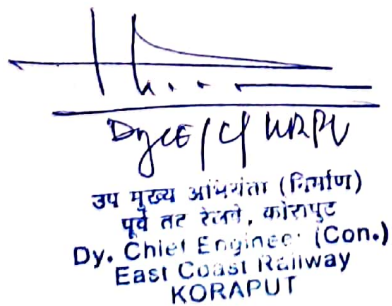 DyCE/C/KRPU
उप मुख्य अभियंता (निर्माण)
पूर्व तट रेलवे, कोरापुट
Dy. Chief Engineer (Con.)
East Coast Railway
KORAPUT